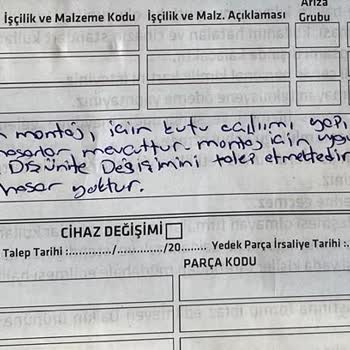 Arıza
İşçilik ve Malzeme Kodu İşçilik ve Malz. Açıklaması Grubu
montaj, için kutu açılımı yapı
hasarlar mevcuttur. montaj için
Dış ünite Değişimini talep etmektedir
hasar yoktur.
CİHAZ DEĞİŞİMİ
Talep Tarihi :............/............/20....... Yedek Parça İrsaliye Tarihi :.
PARÇA KODU